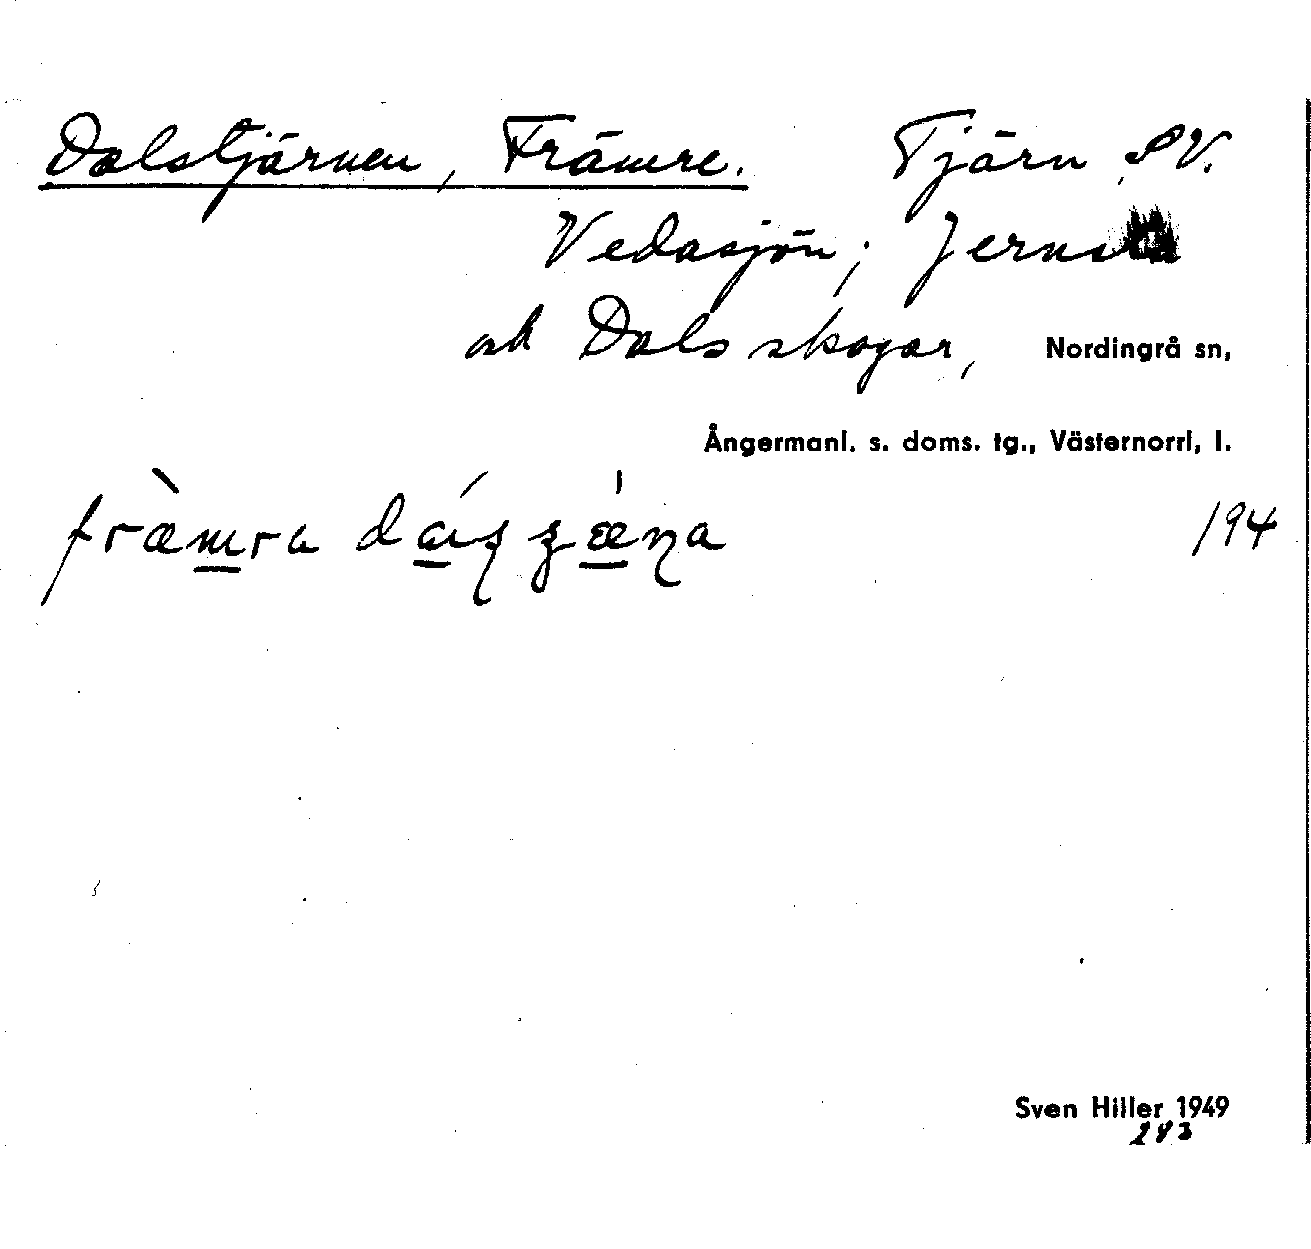 Dalstjärnen, Främre. Tjärn SV.
Vedasjön; Jernsta
och Dals skogar, Nordingrå sn,
Ångermanl. s. doms. tg., Västernorrl, l.
194
Sven Hiller 1949